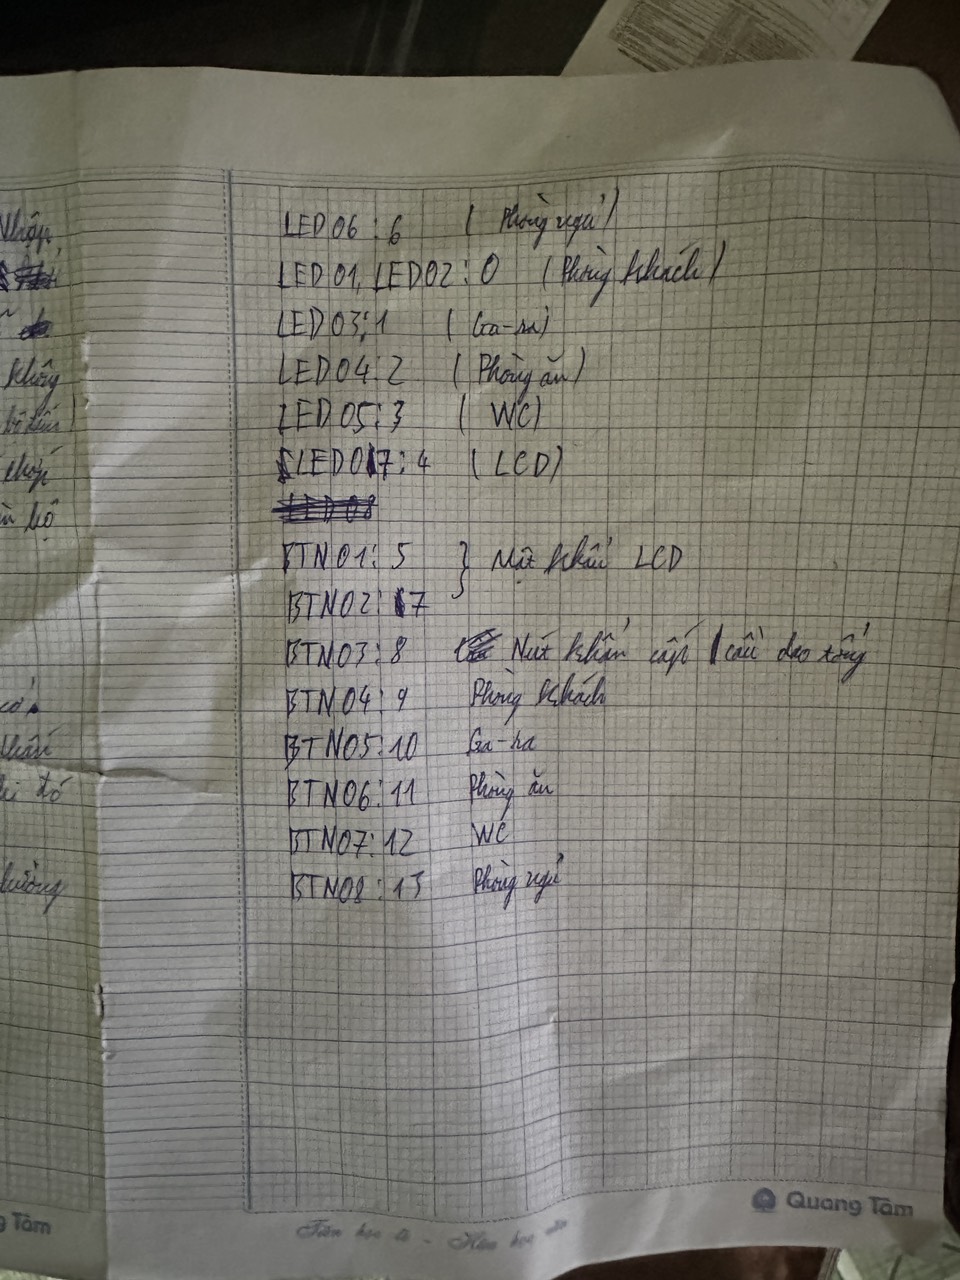 Nhập
không
LED06: 6 (Phòng ngủ)
LED01, LED02: 0 (Phòng khách)
LED03: 1 (Ga-ra)
LED04: 2 (Phòng ăn)
LED05: 3 (WC)
LED07: 4 (LCD)
LED08
BTN01: 5 } Mật khẩu LCD
BTN02: 7
BTN03: 8 Nút khẩn cấp / cầu dao tổng
BTN04: 9 Phòng khách
BTN05: 10 Ga-ra
BTN06: 11 Phòng ăn
BTN07: 12 WC
BTN08: 13 Phòng ngủ
Quang Tâm
g Tâm
Tiên học lễ - Hậu học văn